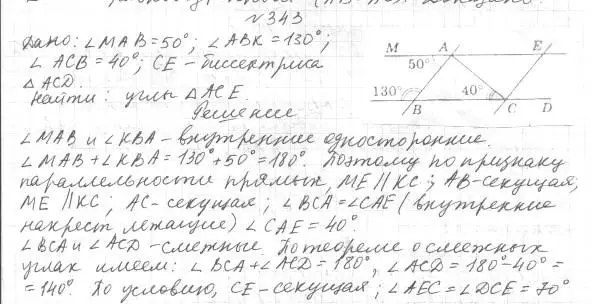 №343
Дано: ∠MAB=50°; ∠ABK=130°;
∠ACB=40°; CE – биссектриса
△ACD.
Найти: углы △ACE.
Решение
M A E
50°
130° 40°
B C D
∠MAB и ∠KBA – внутренние односторонние.
∠MAB+∠KBA=130°+50°=180°. Поэтому по признаку
параллельности прямых, ME∥KC; AB-секущая;
ME∥KC; AC-секущая; ∠BCA=∠CAE (внутренние
накрест лежащие) ∠CAE=40°.
∠BCA и ∠ACD – смежные. По теореме о смежных
углах имеем: ∠BCA+∠ACD=180°, ∠ACD=180°-40°=
=140° По условию, CE-секущая; ∠AEC=∠DCE=70°